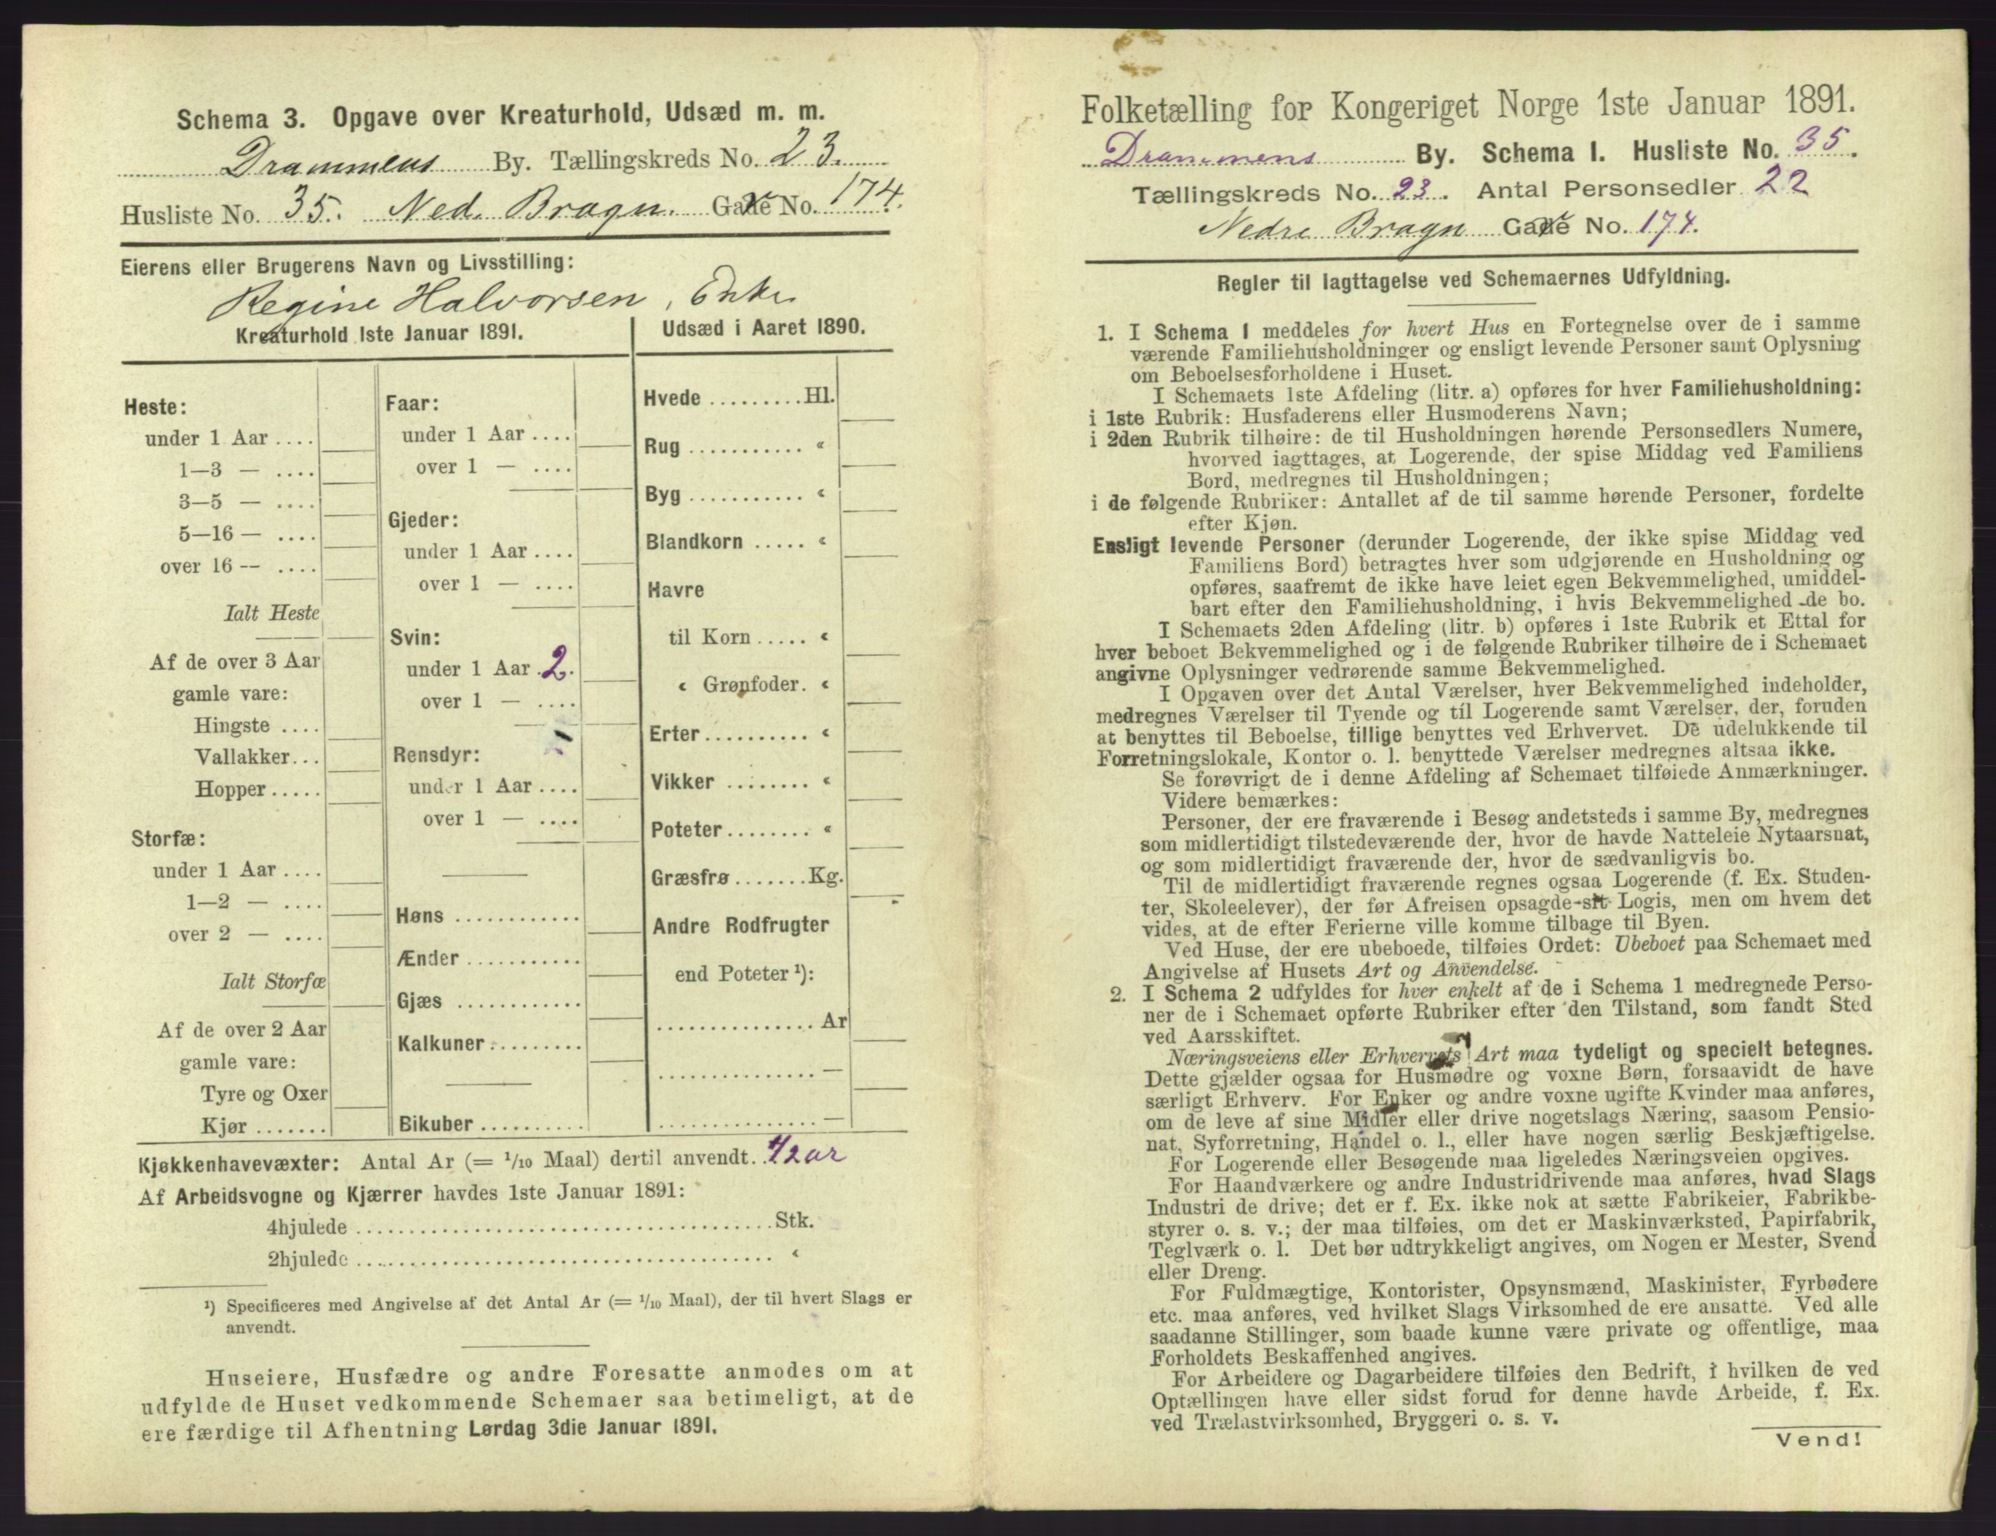 Schema 3. Opgave over Kreaturhold, Udsæd m. m.
Drammens By. Tællingskreds No. 23.
Husliste No. 35. Ned. Bragn. Gade No. 174.
Eierens eller Brugerens Navn og Livsstilling:
Regine Halvorsen, Enke
Kreaturhold 1ste Januar 1891.
Heste:
under 1 Aar ....
1—3 — ....
3—5 — ....
5—16 — ....
over 16 — ....
Ialt Heste
Af de over 3 Aar
gamle vare:
Hingste ....
Vallakker...
Hopper.....
Storfæ:
under 1 Aar ....
1—2 — ....
over 2 — ....
Ialt Storfæ
Af de over 2 Aar
gamle vare:
Tyre og Oxer
Kjør .......
Faar:
under 1 Aar ....
over 1 — ....
Gjeder:
under 1 Aar ....
over 1 — ....
Svin:
under 1 Aar . 2.
over 1 — ....
Rensdyr:
under 1 Aar ....
over 1 — ....
Høns ............
Ænder ...........
Gjæs ............
Kalkuner.........
Bikuber ..........
Udsæd i Aaret 1890.
Hvede .........Hl.
Rug ........... “
Byg ........... “
Blandkorn ..... “
Havre
til Korn ..... “
“ Grønfoder. “
Erter.......... “
Vikker ........ “
Poteter........ “
Græsfrø .......Kg.
Andre Rodfrugter
end Poteter ¹):
............... Ar
............... —
............... —
Kjøkkenhavevæxter: Antal Ar (= 1/10 Maal) dertil anvendt. 1/2 ar
Af Arbeidsvogne og Kjærrer havdes 1ste Januar 1891:
4hjulede ........................................Stk.
2hjulede ........................................ “
¹) Specificeres med Angivelse af det Antal Ar (= 1/10 Maal), der til hvert Slags er
anvendt.
Huseiere, Husfædre og andre Foresatte anmodes om at
udfylde de Huset vedkommende Schemaer saa betimeligt, at de
ere færdige til Afhentning Lørdag 3die Januar 1891.
Folketælling for Kongeriget Norge 1ste Januar 1891.
Drammens By. Schema I. Husliste No. 35.
Tællingskreds No. 23. Antal Personsedler 22
Nedre Bragn Gade No. 174.
Regler til Iagttagelse ved Schemaernes Udfyldning.
1. I Schema 1 meddeles for hvert Hus en Fortegnelse over de i samme
værende Familiehusholdninger og ensligt levende Personer samt Oplysning
om Beboelsesforholdene i Huset.
I Schemaets 1ste Afdeling (litr. a) opføres for hver Familiehusholdning:
i 1ste Rubrik: Husfaderens eller Husmoderens Navn;
i 2den Rubrik tilhøire: de til Husholdningen hørende Personsedlers Numere,
hvorved iagttages, at Logerende, der spise Middag ved Familiens
Bord, medregnes til Husholdningen;
i de følgende Rubriker: Antallet af de til samme hørende Personer, fordelte
efter Kjøn.
Ensligt levende Personer (derunder Logerende, der ikke spise Middag ved
Familiens Bord) betragtes hver som udgjørende en Husholdning og
opføres, saafremt de ikke have leiet egen Bekvemmelighed, umiddel-
bart efter den Familiehusholdning, i hvis Bekvemmelighed de bo.
I Schemaets 2den Afdeling (litr. b) opføres i 1ste Rubrik et Ettal for
hver beboet Bekvemmelighed og i de følgende Rubriker tilhøire de i Schemaet
angivne Oplysninger vedrørende samme Bekvemmelighed.
I Opgaven over det Antal Værelser, hver Bekvemmelighed indeholder,
medregnes Værelser til Tyende og til Logerende samt Værelser, der, foruden
at benyttes til Beboelse, tillige benyttes ved Erhvervet. De udelukkende til
Forretningslokale, Kontor o. l. benyttede Værelser medregnes altsaa ikke.
Se forøvrigt de i denne Afdeling af Schemaet tilføiede Anmærkninger.
Videre bemærkes:
Personer, der ere fraværende i Besøg andetsteds i samme By, medregnes
som midlertidigt tilstedeværende der, hvor de havde Natteleie Nytaarsnat,
og som midlertidigt fraværende der, hvor de sædvanligvis bo.
Til de midlertidigt fraværende regnes ogsaa Logerende (f. Ex. Studen-
ter, Skoleelever), der før Afreisen opsagde sit Logis, men om hvem det
vides, at de efter Ferierne ville komme tilbage til Byen.
Ved Huse, der ere ubeboede, tilføies Ordet: Ubeboet paa Schemaet med
Angivelse af Husets Art og Anvendelse.
2. I Schema 2 udfyldes for hver enkelt af de i Schema 1 medregnede Perso-
ner de i Schemaet opførte Rubriker efter den Tilstand, som fandt Sted
ved Aarsskiftet.
Næringsveiens eller Erhvervets Art maa tydeligt og specielt betegnes.
Dette gjælder ogsaa for Husmødre og voxne Børn, forsaavidt de have
særligt Erhverv. For Enker og andre voxne ugifte Kvinder maa anføres,
om de leve af sine Midler eller drive nogetslags Næring, saasom Pensio-
nat, Syforretning, Handel o. l., eller have nogen særlig Beskjæftigelse.
For Logerende eller Besøgende maa ligeledes Næringsveien opgives.
For Haandværkere og andre Industridrivende maa anføres, hvad Slags
Industri de drive; det er f. Ex. ikke nok at sætte Fabrikeier, Fabrikbe-
styrer o. s. v.; der maa tilføies, om det er Maskinværksted, Papirfabrik,
Teglværk o. l. Det bør udtrykkeligt angives, om Nogen er Mester, Svend
eller Dreng.
For Fuldmægtige, Kontorister, Opsynsmænd, Maskinister, Fyrbødere
etc. maa anføres, ved hvilket Slags Virksomhed de ere ansatte. Ved alle
saadanne Stillinger, som baade kunne være private og offentlige, maa
Forholdets Beskaffenhed angives.
For Arbeidere og Dagarbeidere tilføies den Bedrift, i hvilken de ved
Optællingen have eller sidst forud for denne havde Arbeide, f. Ex.
ved Trælastvirksomhed, Bryggeri o. s. v.
Vend!